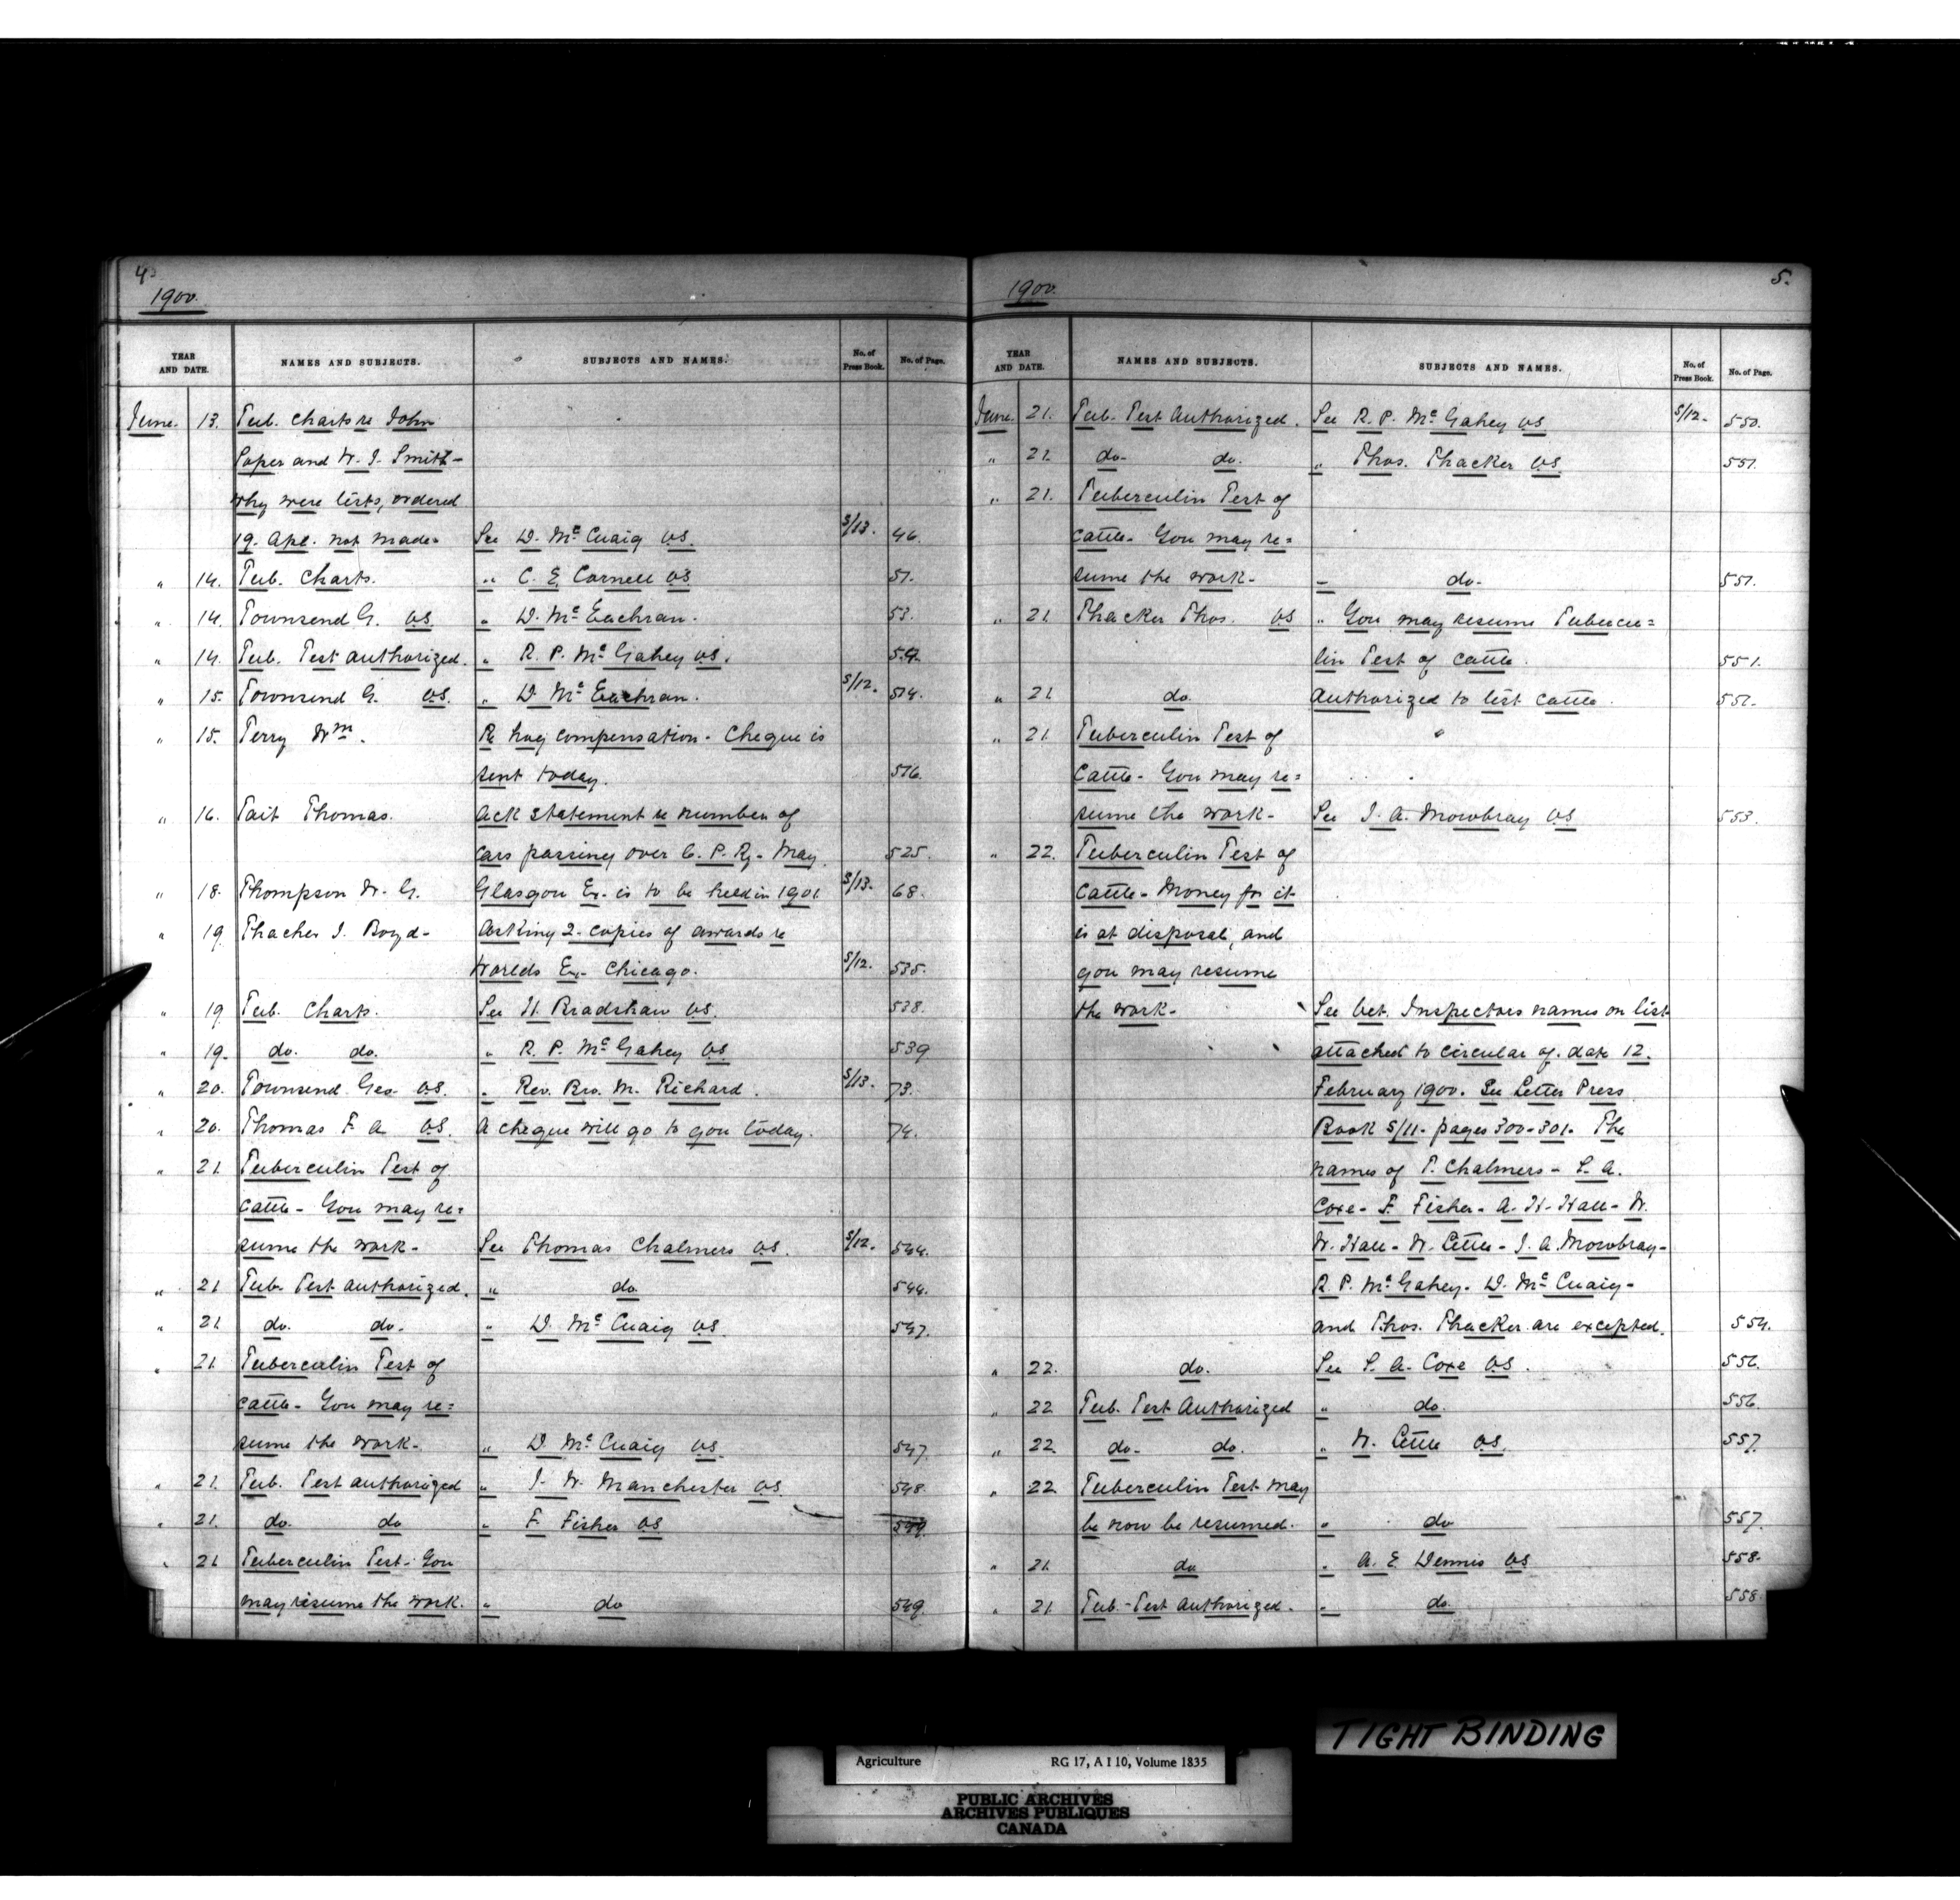 4.
1900.
YEAR AND DATE. NAMES AND SUBJECTS. SUBJECTS AND NAMES. No. of Press Book. No. of Page.
June. 13. Tub. Charts re John
Soper and W. J. Smith -
why were tests, ordered
19. Apl. not made - See D. McCuaig V.S. S/13. 46.
" 14. Tub. Charts. " C. E. Cornell V.S. 51.
" 14. Townsend G. V.S. " D. McEachran. 53.
" 14. Tub. Test authorized. " R. P. McGahey V.S. 54.
" 15. Townsend G. V.S. " D. McEachran. S/12. 514.
" 15. Terry Wm. Re hog compensation - Cheque is
sent today. 516.
" 16. Tait Thomas. Ack statement re number of
cars passing over C. P. Ry - May. 525.
" 18. Thompson W. G. Glasgow Ex. is to be held in 1901. S/13. 68.
" 19. Thacher J. Boyd - Asking 2 copies of awards re
Worlds Ex. Chicago. S/12. 535.
" 19 Tub. Charts. See H. Bradshaw V.S. 538.
" 19. do. do. " R. P. McGahey V.S. 539
" 20. Townsend Geo. V.S. " Rev. Bro. M. Richard. S/13. 73.
" 20. Thomas F. A. V.S. A cheque will go to you today. 74.
" 21. Tuberculin Test of
cattle - You may re=
sume the work - See Thomas Chalmers V.S. S/12. 544.
" 21 Tub. Test authorized. " do. 544.
" 21 do. do. " D. McCuaig V.S. 547.
" 21. Tuberculin Test of
cattle - You may re=
sume the work - " D. McCuaig V.S. 547.
" 21. Tub. Test authorized " J. W. Manchester V.S. 548.
" 21. do. do " F. Fisher V.S. 549.
" 21 Tuberculin Test - You
may resume the work. " do 549.
5.
1900.
YEAR AND DATE. NAMES AND SUBJECTS. SUBJECTS AND NAMES. No. of Press Book. No. of Page.
June. 21. Tub. Test Authorized. See R. P. McGahey V.S. S/12. 550.
" 21. do. do. " Thos. Thacker V.S. 551.
" 21. Tuberculin Test of
cattle - You may re=
sume the work - " do. 551.
" 21. Thacker Thos. V.S. " You may resume Tubercu=
lin Test of cattle. 551.
" 21 do. Authorized to test cattle. 551.
" 21 Tuberculin Test of
Cattle - You may re=
sume the work - See J. A. Mowbray V.S. 553.
" 22. Tuberculin Test of
cattle - Money for it
is at disposal, and
you may resume
the work - See Vet. Inspectors names on list
attached to circular of date 12.
February 1900. See Letter Press
Book S/11 - pages 300-301. The
names of T. Chalmers - S. A.
Coxe - F. Fisher - A. H. Hall - W.
W. Hall - W. Little - J. A. Mowbray -
R. P. McGahey - D. McCuaig -
and Thos. Thacker are excepted. 554.
" 22. do. See S. A. Coxe V.S. 556.
" 22 Tub. Test Authorized " do. 556
" 22. do. do. " W. Little V.S. 557.
" 22. Tuberculin Test may
be now be resumed. " do 557.
" 21. do " A. E. Dennis V.S. 558.
" 21. Tub. Test Authorized. " do. 558.
TIGHT BINDING
Agriculture RG 17, A I 10, Volume 1835
PUBLIC ARCHIVES
ARCHIVES PUBLIQUES
CANADA